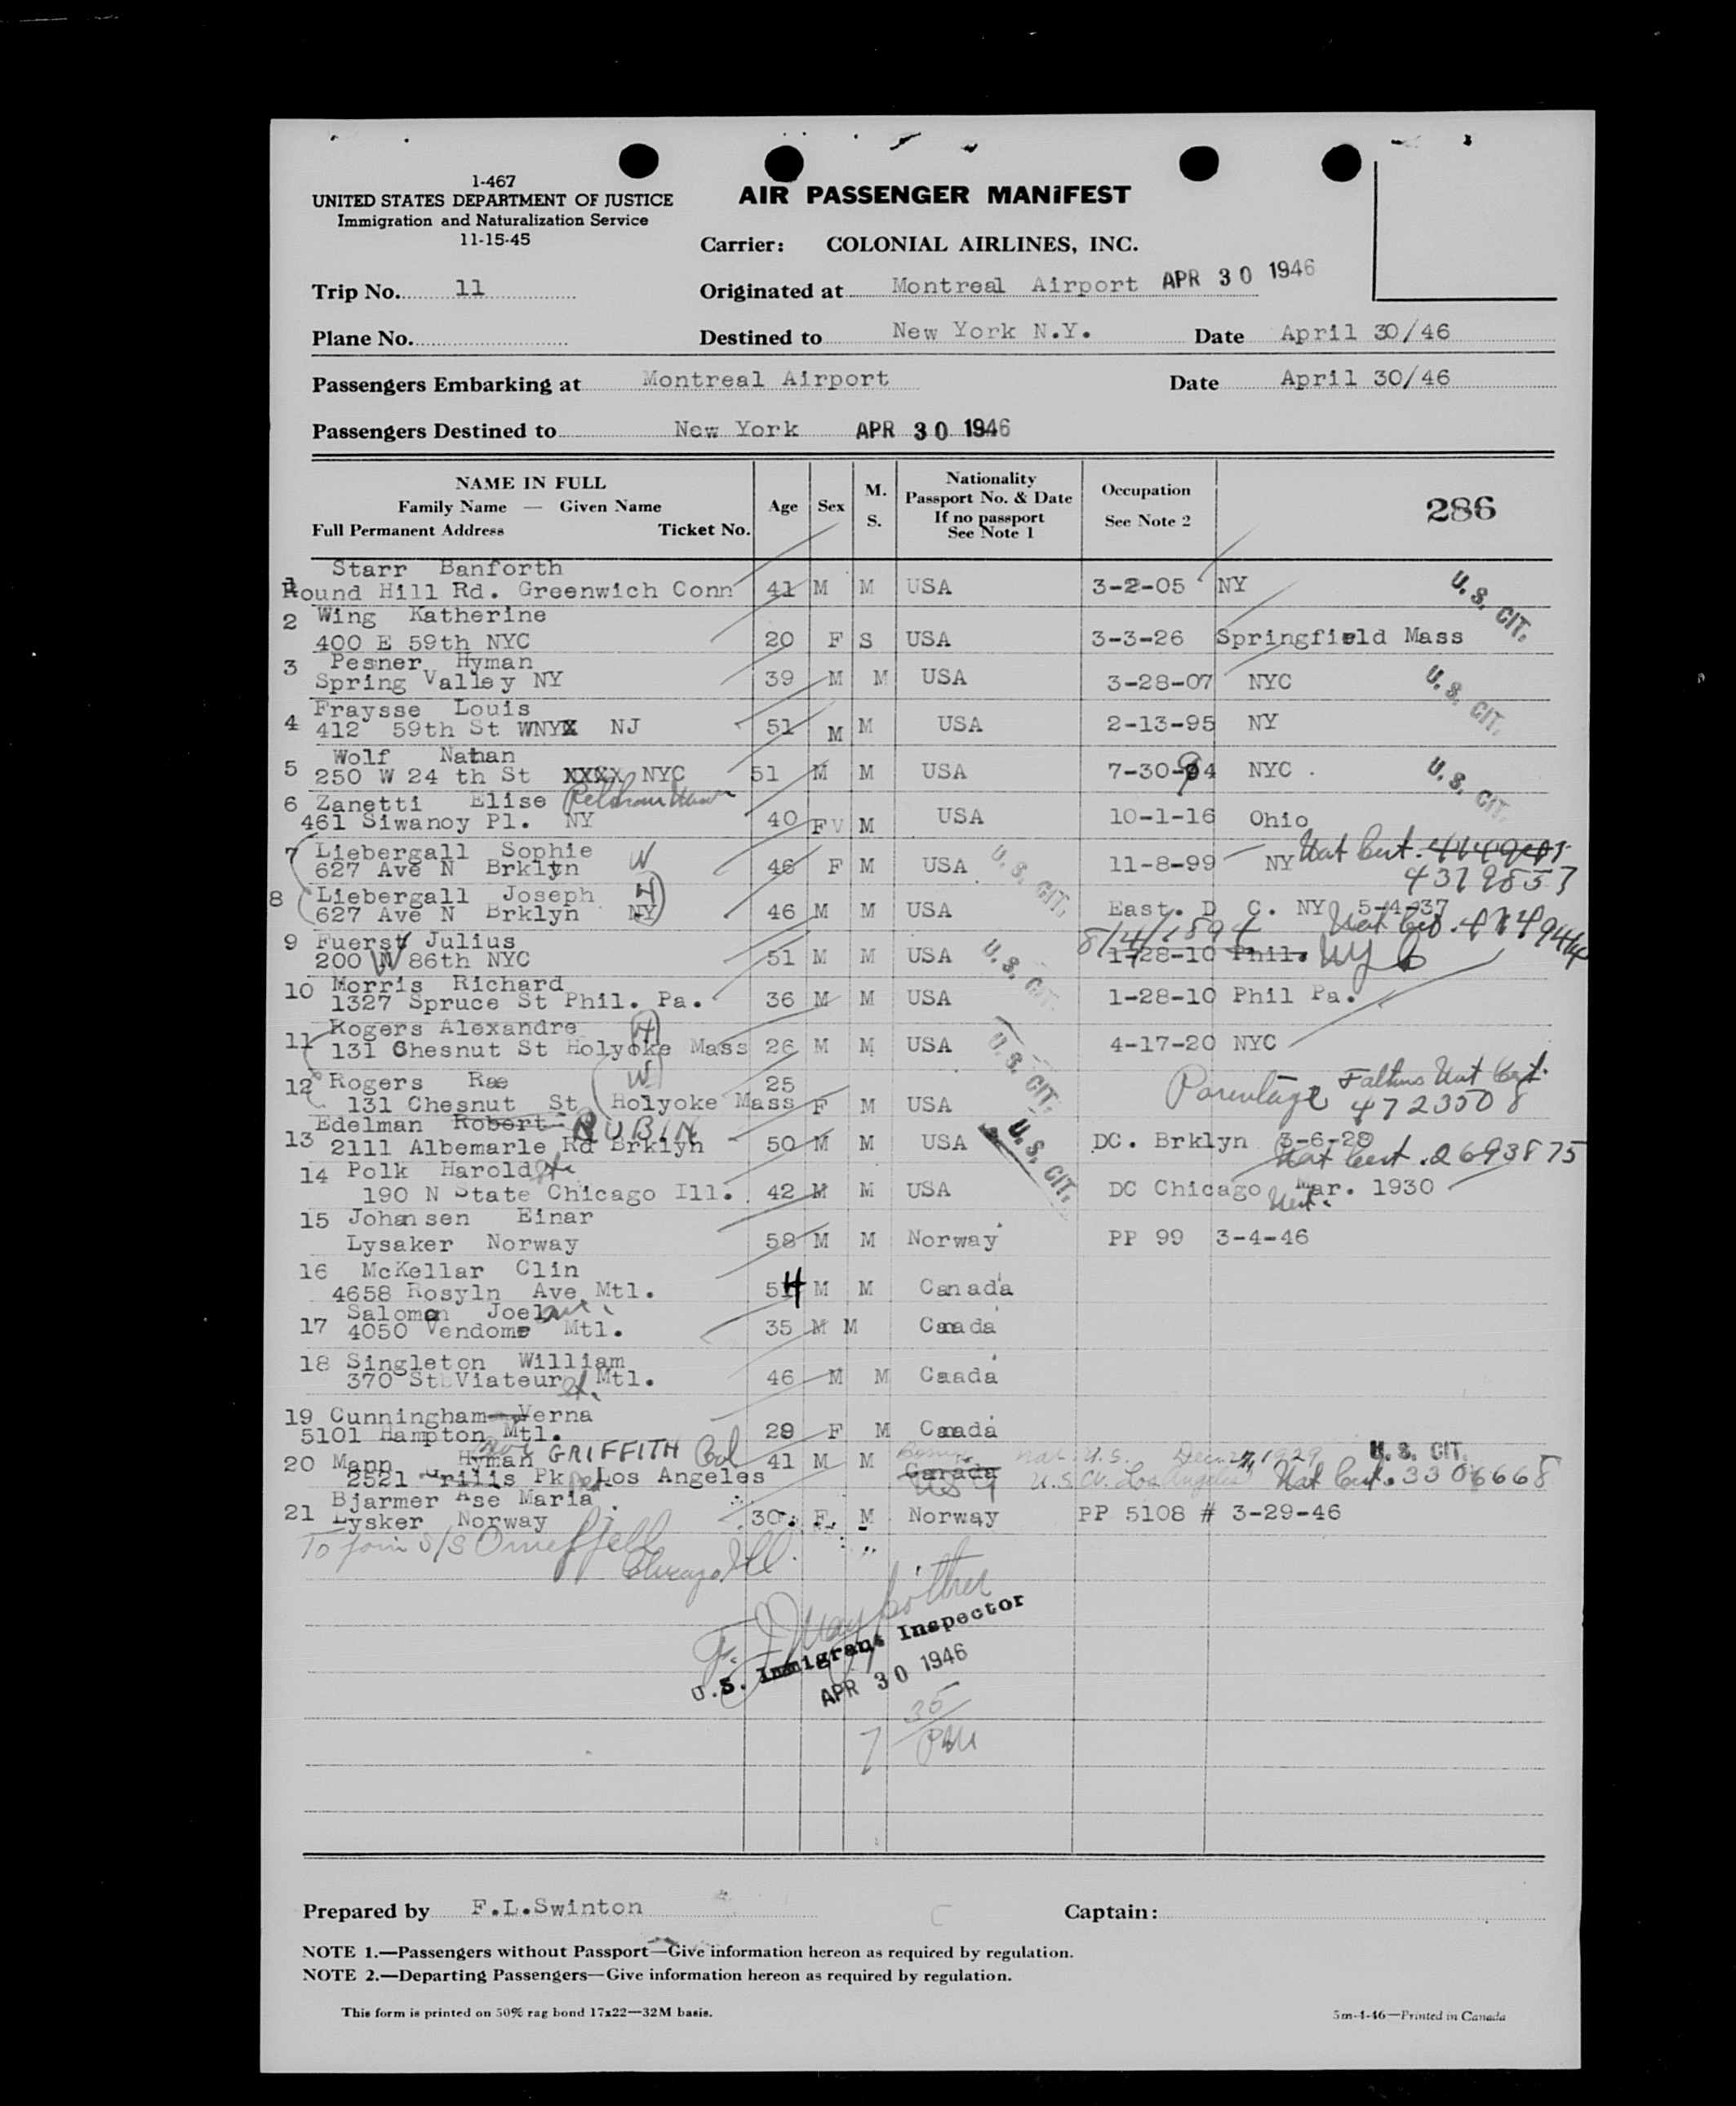 1-467
UNITED STATES DEPARTMENT OF JUSTICE
Immigration and Naturalization Service
11-15-45
AIR PASSENGER MANIFEST
Carrier: COLONIAL AIRLINES, INC.
Trip No. 11
Originated at Montreal Airport APR 30 1946
Plane No.
Destined to New York N.Y. Date April 30/46
Passengers Embarking at Montreal Airport Date April 30/46
Passengers Destined to New York APR 30 1946
NAME IN FULL
Family Name — Given Name
Full Permanent Address Ticket No.
Age Sex M. S.
Nationality
Passport No. & Date
If no passport
See Note 1
Occupation
See Note 2
286
Starr Banforth
1 Round Hill Rd. Greenwich Conn 41 M M USA 3-2-05 NY U. S. CIT.
2 Wing Katherine
400 E 59th NYC 20 F S USA 3-3-26 Springfield Mass
3 Pesner Hyman
Spring Valley NY 39 M M USA 3-28-07 NYC U. S. CIT.
4 Fraysse Louis
412 59th St WNYX NJ 51 M M USA 2-13-95 NY
5 Wolf Nathan
250 W 24 th St XXXX NYC 51 M M USA 7-30-94 NYC . U. S. CIT.
6 Zanetti Elise Pelham Manor
461 Siwanoy Pl. NY 40 F V M USA 10-1-16 Ohio
7 Liebergall Sophie W
627 Ave N Brklyn 46 F M USA U. S. CIT. 11-8-99 NY Nat Cert.
4379557
8 Liebergall Joseph H
627 Ave N Brklyn NY 46 M M USA East. D C. NY 5-4-37
Nat Cert.
9 Fuerst Julius 8/4/1894
200 W 86th NYC 51 M M USA U. S. CIT. 1-28-10 Phil. NY
10 Morris Richard
1327 Spruce St Phil. Pa. 36 M M USA 1-28-10 Phil Pa.
11 Rogers Alexandre H
131 Chesnut St Holyoke Mass 26 M M USA U. S. CIT. 4-17-20 NYC
12 Rogers Rae W 25
131 Chesnut St Holyoke Mass F M USA Parentage Fathers Nat Cert.
4723508
Edelman Robert RUBIN U. S. CIT.
13 2111 Albemarle Rd Brklyn 50 M M USA DC. Brklyn 3-6-28
Nat Cert. 2693875
14 Polk Harold
190 N State Chicago Ill. 42 M M USA DC Chicago Mar. 1930
15 Johansen Einar
Lysaker Norway 58 M M Norway PP 99 3-4-46
16 McKellar Clin
4658 Rosyln Ave Mtl. 54 M M Canada
Salomon Joel
17 4050 Vendome Mtl. 35 M M Canada
18 Singleton William
370 St Viateur Mtl. 46 M M Caada
19 Cunningham Verna
5101 Hampton Mtl. 29 F M Canada
20 Mann Hyman GRIFFITH 41 M M Canada Nat. U.S. Dec. 27, 1929 U. S. CIT.
2521 Grills Pk Los Angeles U.S. Los Angeles Nat Cert. 3306668
Bjarmer Ase Maria
21 Lysker Norway 30 F M Norway PP 5108 # 3-29-46
To join S/S
Chicago Ill.
U.S. Immigrant Inspector
APR 30 1946
7 35
PM
Prepared by F.L.Swinton Captain:
NOTE 1.—Passengers without Passport—Give information hereon as required by regulation.
NOTE 2.—Departing Passengers—Give information hereon as required by regulation.
This form is printed on 50% rag bond 17x22—32M basis. 5m-4-46—Printed in Canada